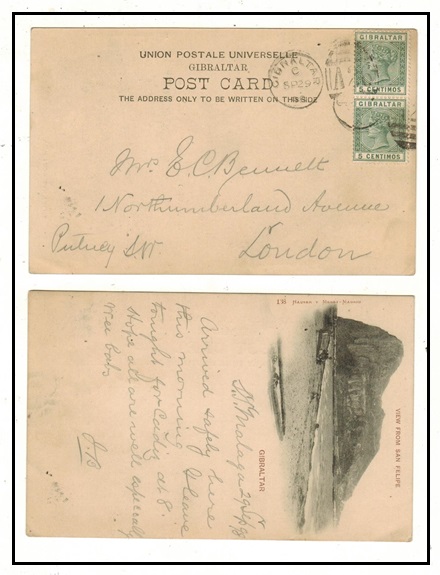 UNION POSTALE UNIVERSELLE
GIBRALTAR
POST CARD
THE ADDRESS ONLY TO BE WRITTEN ON THIS SIDE
GIBRALTAR
C
SP 29
98
GIBRALTAR
5 CENTIMOS
GIBRALTAR
5 CENTIMOS
Mrs. E. C. Bennett
1 Northumberland Avenue
Putney S.W.
London
VIEW FROM SAN FELIPE
GIBRALTAR
Malaga 29 Sep 98
Arrived safely here
this morning I leave
tonight for Cadiz at 8.
Hope all are well especially
wee babs